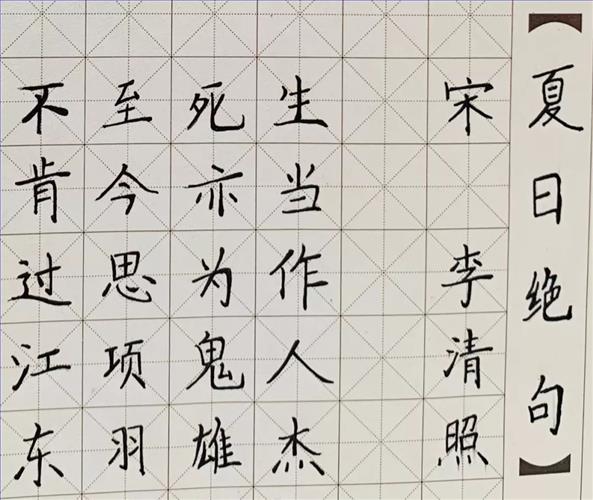 【夏日绝句】
宋 李清照
生当作人杰
死亦为鬼雄
至今思项羽
不肯过江东